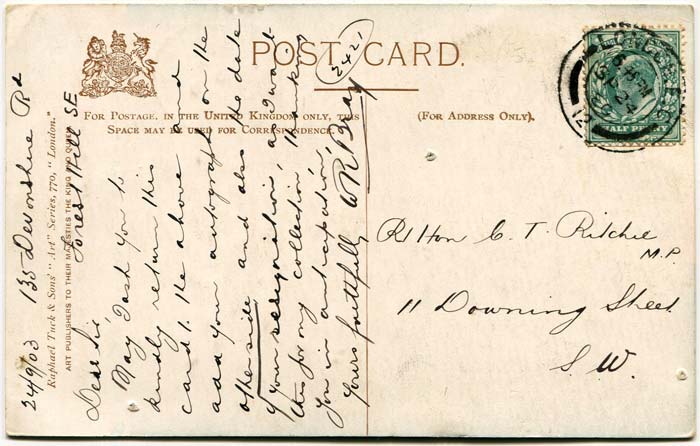 POST CARD.
FOR POSTAGE, IN THE UNITED KINGDOM ONLY, THIS
SPACE MAY BE USED FOR CORRESPONDENCE.
(FOR ADDRESS ONLY).
HALF PENNY
2421
Raphael Tuck & Sons' "Art" Series, 770, "London."
ART PUBLISHERS TO THEIR MAJESTIES THE KING AND QUEEN
24/9/03 135 Devonshire Rd
Forest Hill SE
Dear Sir
May I ask you to
kindly return this
card. The above and
add your autograph on the
other side and also the date
of your resignation, as I want
this for my collection, thanking
you in anticipation,
Yours faithfully W R Bray
Rt Hon C. T. Ritchie
M.P.
11 Downing Street
S. W.